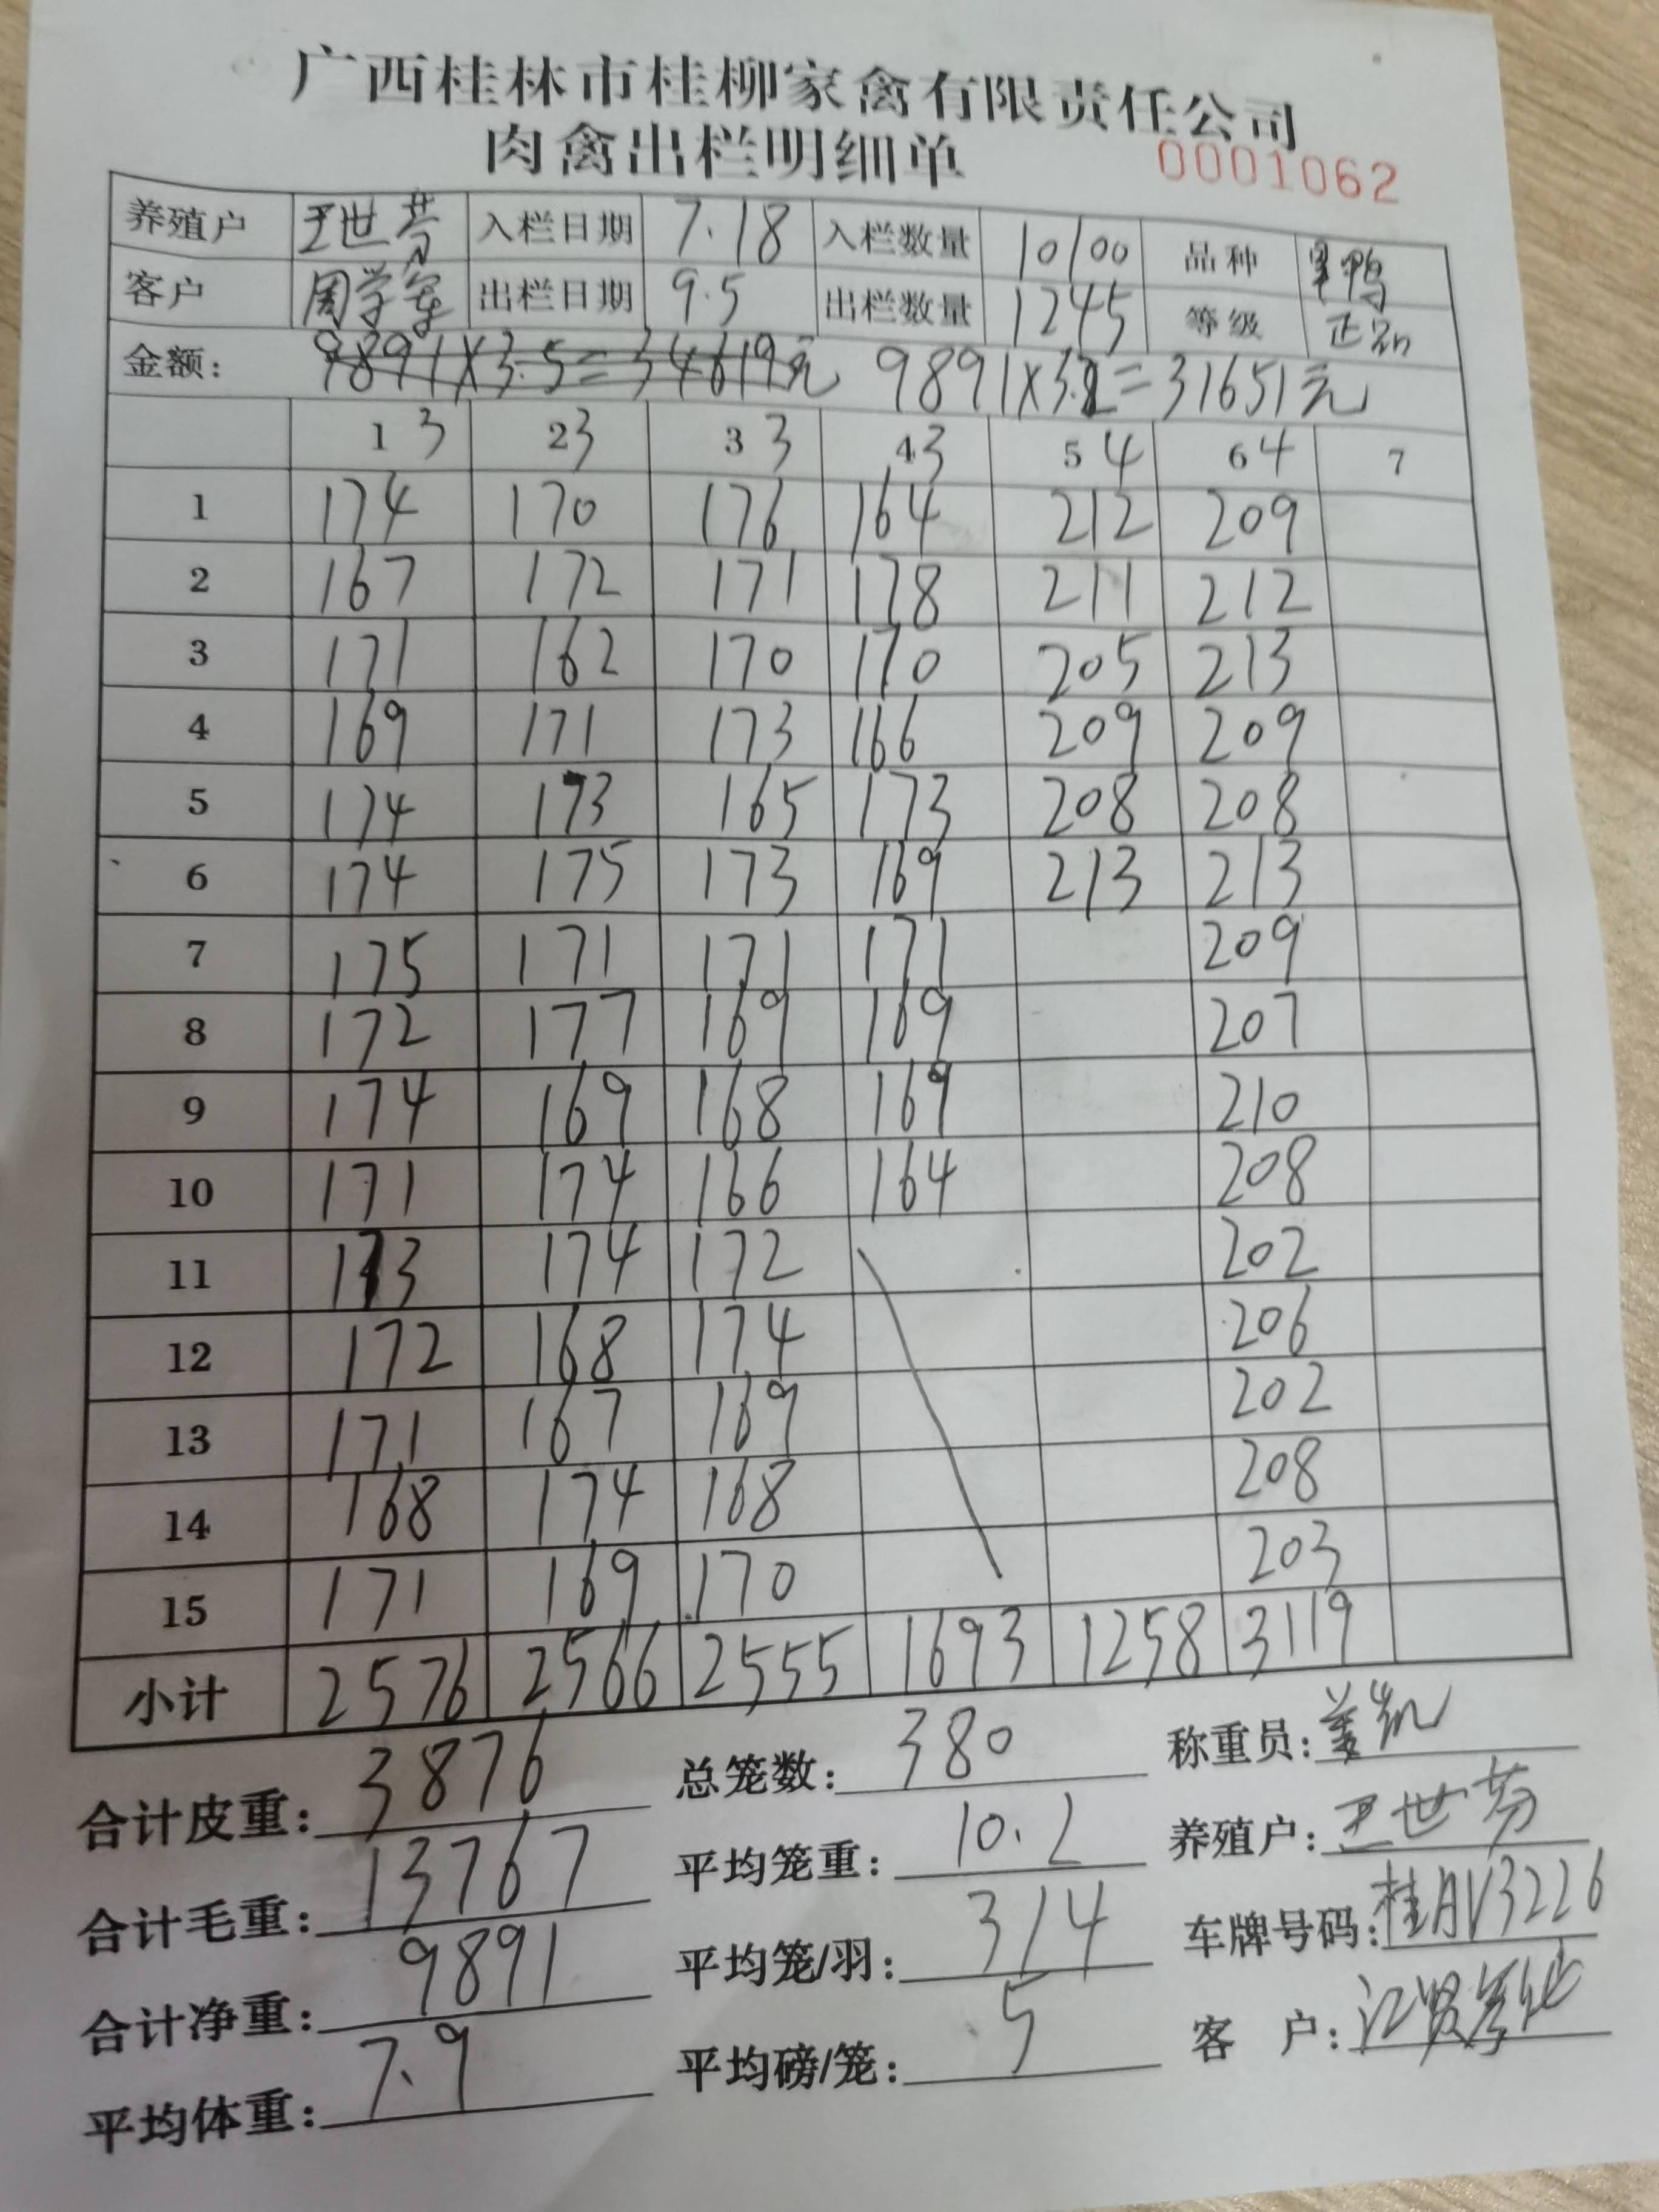 广西桂林市桂柳家禽有限责任公司
肉禽出栏明细单
0001062
养殖户 王世芬 入栏日期 7.18 入栏数量 10100 品种 鸭
客户 周学军 出栏日期 9.5 出栏数量 1245 等级 正品
金额: 9891X3.5=34619元 9891X3.2=31651元
1 3 2 3 3 3 4 3 5 4 6 4 7
1 174 170 176 164 212 209
2 167 172 171 178 211 212
3 171 162 170 170 205 213
4 169 171 173 166 209 209
5 174 173 165 173 208 208
6 174 175 173 169 213 213
7 175 171 171 171 209
8 172 177 169 169 207
9 174 169 168 169 210
10 171 174 166 164 208
11 173 174 172 202
12 172 168 174 206
13 171 167 169 202
14 168 174 168 208
15 171 169 170 203
小计 2576 2566 2555 1693 1258 3119
合计皮重: 3876 总笼数: 380 称重员: 姜凯
合计毛重: 13767 平均笼重: 10.2 养殖户: 王世芬
合计净重: 9891 平均笼/羽: 3/4 车牌号码: 桂AV3226
平均体重: 7.9 平均磅/笼: 5 客 户: